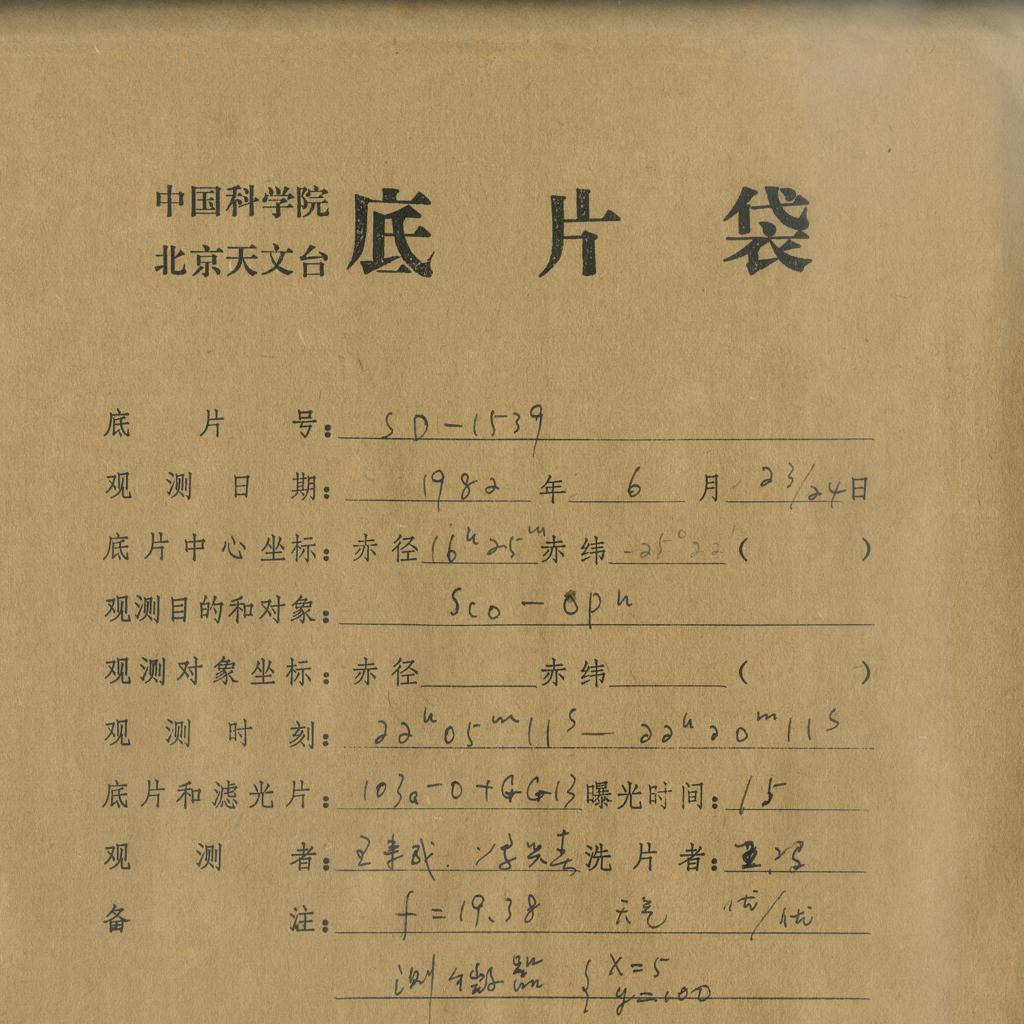 中国科学院
北京天文台
底片袋
底片号：SD-1539
观测日期：1982年6月23/24日
底片中心坐标：赤径16h25m赤纬-25°22'（ ）
观测目的和对象：Sco-Oph
观测对象坐标：赤径 赤纬 （ ）
观测时刻：22h05m11s—22h20m11s
底片和滤光片：103a-O+GG13曝光时间：15
观测者：王 兴春洗片者：王
备注：f=19.38 天气 优/优
测 器 { X=5
y=100